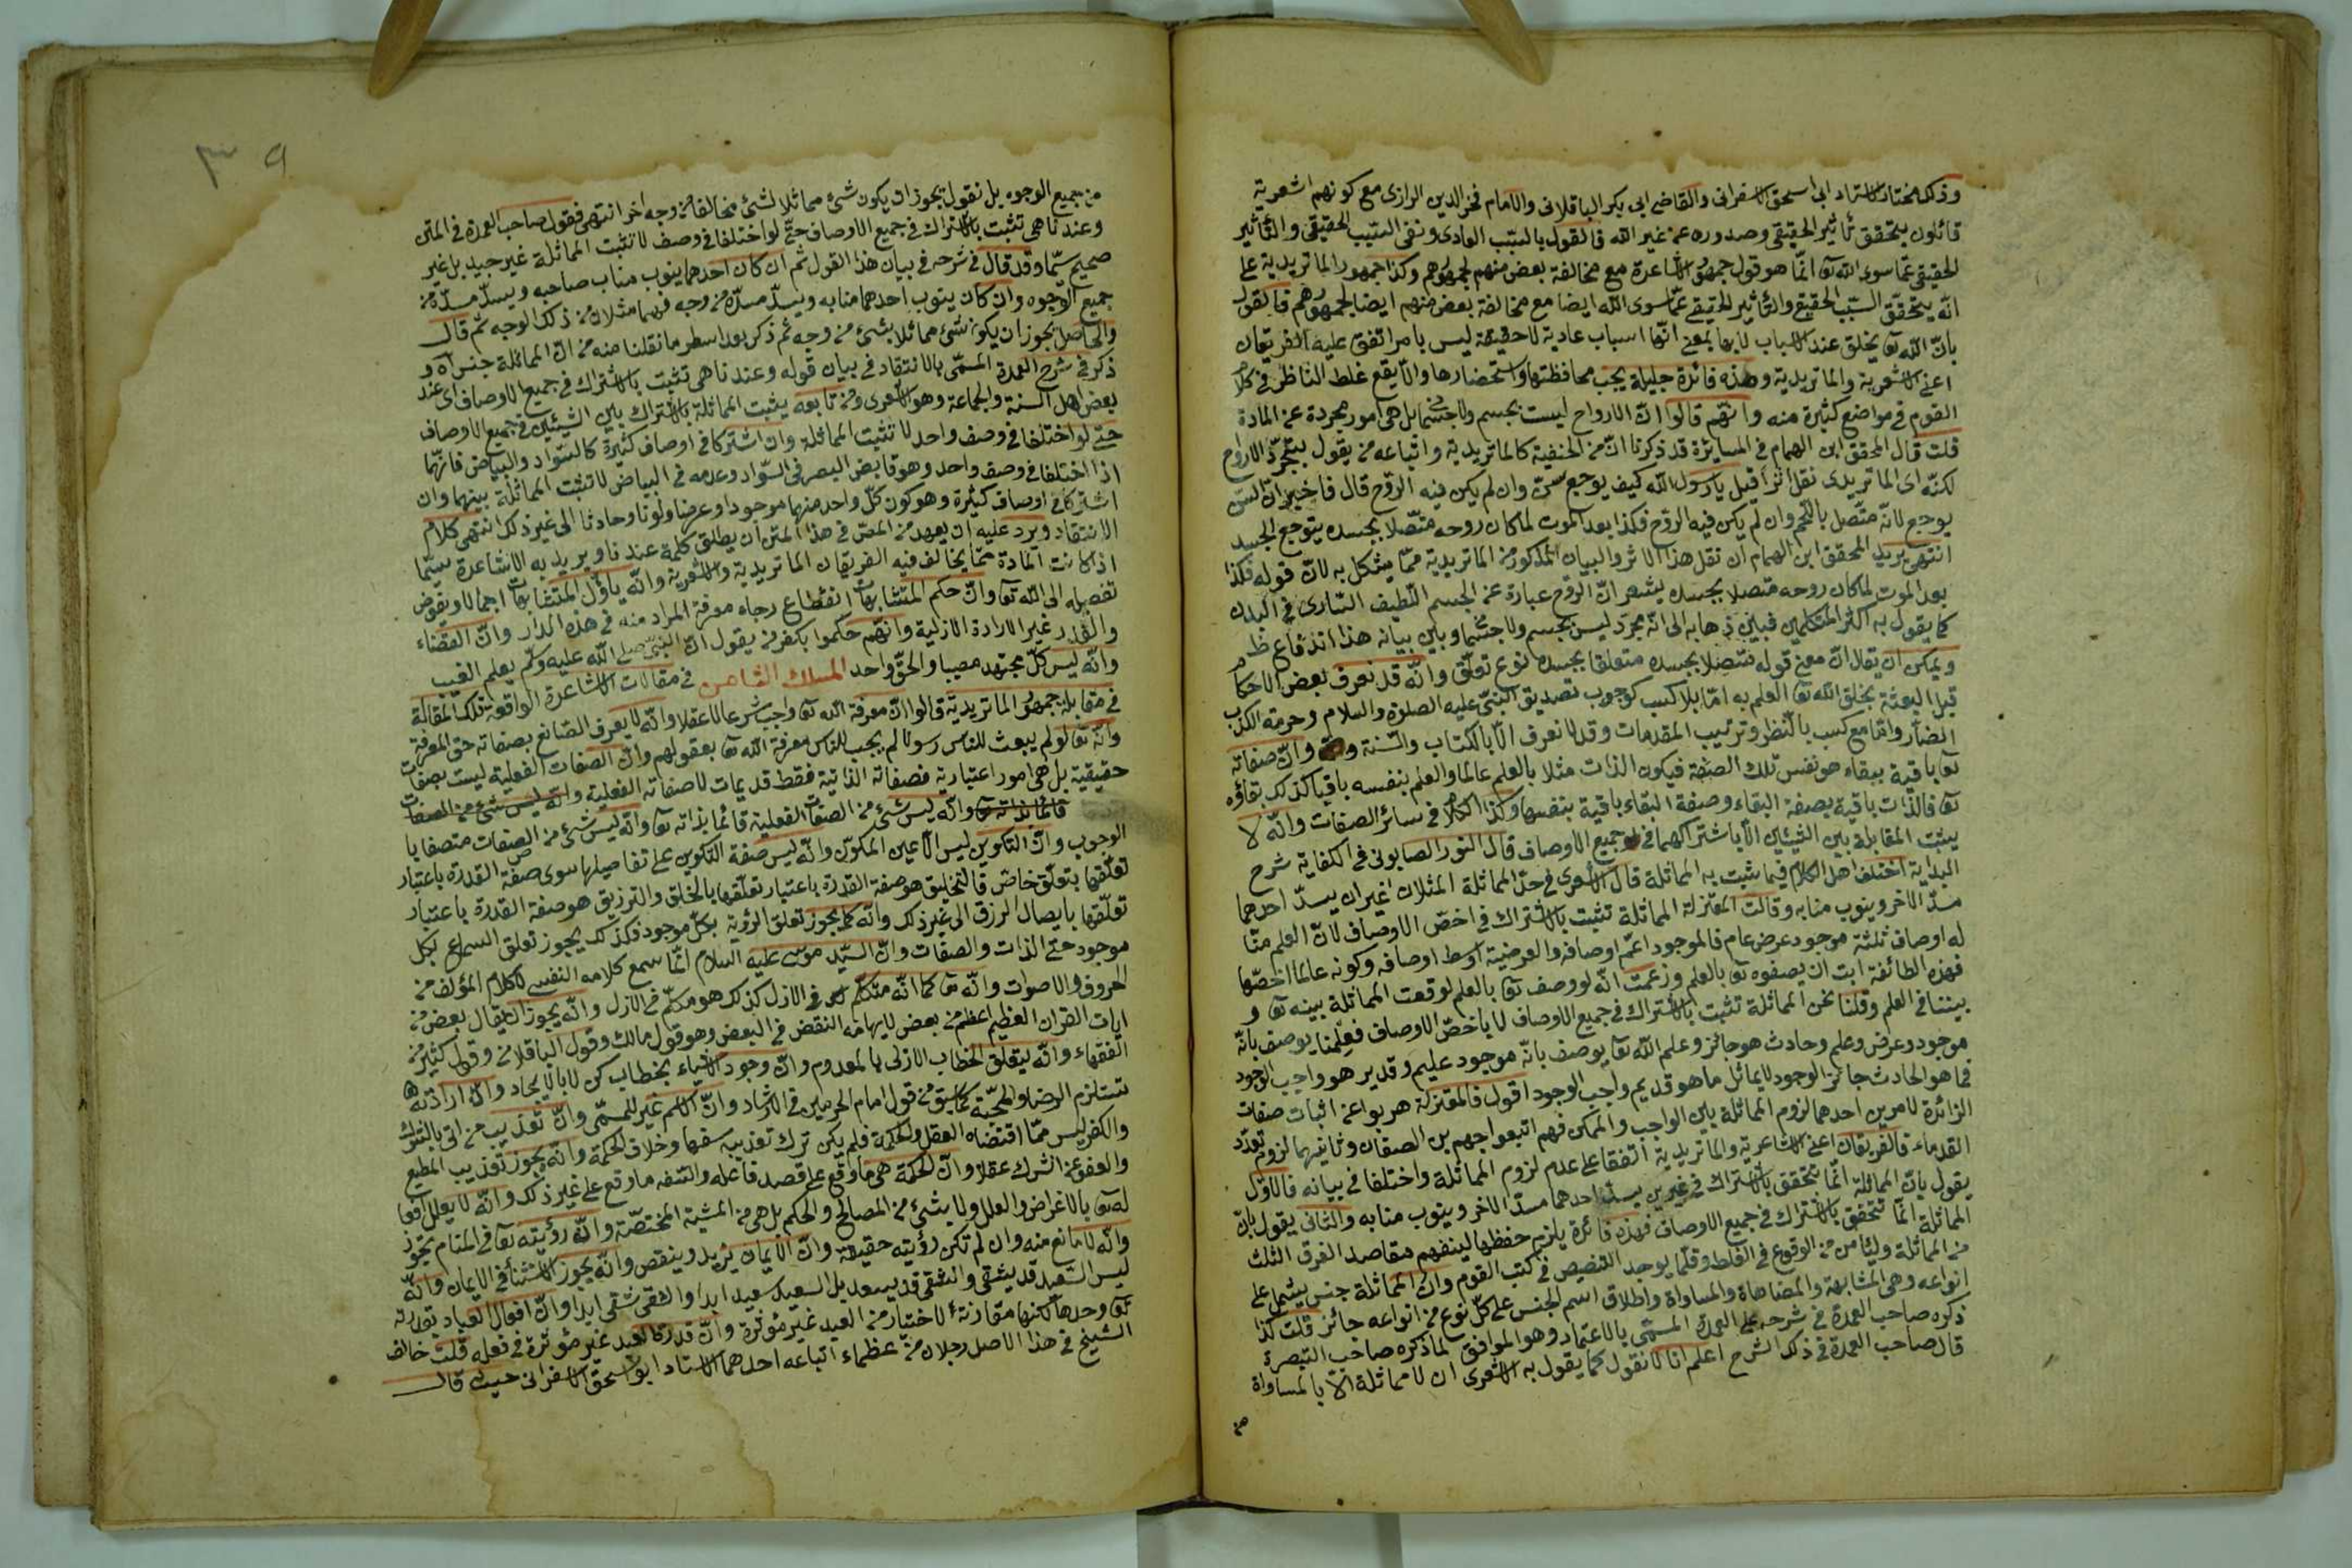 وذلك مختار الاستاد ابى اسحق الاسفرانى والقاضى ابى بكر الباقلانى والامام فخر الدين الرازى مع كونهم اشعرية
قائلون بتحقق تأثير الحقيقى وصدوره عن غير الله فالقول بالسبب العادى ونفى السبب الحقيقى والتأثير
الحقيقى عما سوى الله تعا انما هو قول جمهور الاشاعرة مع مخالفة بعض منهم لجمهورهم وكذا جمهور الماتريدية على
انه يتحقق السبب الحقيقى والتأثير الحقيقى عما سوى الله ايضا مع مخالفة بعض منهم ايضا لجمهورهم فالقول
بان الله تعا يخلق عند الاسباب لا بها بمعنى انها اسباب عادية لا حقيقة ليس بامر اتفق عليه الفريقان
اعنى الاشعرية والماتريدية وهذه فائدة جليلة يجب محافظتها واستحضارها والا يقع غلط الناظر فى كلام
القوم فى مواضع كثيرة منه وانهم قالوا ان الارواح ليست بجسم ولا جسمانى بل هى امور مجردة عن المادة
قلت قال المحقق ابن الهمام فى المسايرة قد ذكرنا ان من الحنفية كالماتريدية واتباعه من يقول بتجرد الارواح
لكنه اى الماتريدى نقل اثرا قيل يا رسول الله كيف يوجع سن وان لم يكن فيه الروح قال فاخبر ان السن
يوجع لانه متصل باللحم وان لم يكن فيه الروح فكذا بعد الموت لما كان روحه متصلا بجسده يتوجع الجسد
انتهى يريد المحقق ابن الهمام ان نقل هذا الاثر والبيان المذكور من الماتريدية مما يشكل به لان قوله فكذا
بعد الموت لما كان روحه متصلا بجسده يشعر ان الروح عبارة عن الجسم اللطيف السارى فى البدن
كما يقول به اكثر المتكلمين فبين ذهابه الى انه مجرد ليس بجسم ولا جسمانى وبين بيانه هذا اندفاع ظ
ويمكن ان يقال ان معنى قوله متصلا بجسده متعلقا بجسده نوع تعلق وانه قد نعرف بعض الاحكام
قبل البعثة بخلق الله تعا العلم به اما بلا كسب كوجوب تصديق النبى عليه الصلوة والسلام وحرمة الكذب
الضار واما مع كسب بالنظر وترتيب المقدمات وقد لا نعرف الا بالكتاب والسنة وان صفاته
تعا باقية ببقاء هو نفس تلك الصفة فيكون الذات مثلا بالعلم عالما والعلم بنفسه باقيا كذلك بقاؤه
تعا فالذات باقية بصفة البقاء وصفة البقاء باقية بنفسها وكذا الكلام فى سائر الصفات وانه لا
يثبت المقابلة بين الشيئين الا باشتراكهما فى جميع الاوصاف قال النور الصابونى فى الكفاية شرح
البداية اختلف اهل الكلام فيما يثبت به المماثلة قال الاشعرى فى حد المماثلة المثلان غيران يسد احدهما
مسد الاخر وينوب منابه وقالت المعتزلة المماثلة تثبت بالاشتراك فى اخص الاوصاف لان العلم منا
له اوصاف ثلثة موجود عرض عام فالموجود اعم اوصافه والعرضية اوسط اوصافه وكونه عالما اخصها
فهذه الطائفة ابت ان يصفوه تعا بالعلم وزعمت انه لو وصف تعا بالعلم لوقعت المماثلة بينه تعا و
بيننا فى العلم وقلنا نحن المماثلة تثبت بالاشتراك فى جميع الاوصاف لا باخص الاوصاف فعلمنا يوصف بانه
موجود وعرض وعلم وحادث هو جائز وعلم الله تعا يوصف بانه موجود عليم وقدير هو واجب الوجود
فما هو الحادث جائز الوجود لا يماثل ما هو قديم واجب الوجود اقول فالمعتزلة هربوا عن اثبات صفات
الزائدة لامرين احدهما لزوم المماثلة بين الواجب والممكن فهم اتبعوا جهم بن الصفوان وثانيهما لزوم تعدد
القدماء فالفريقان اعنى الاشاعرة والماتريدية اتفقا على عدم لزوم المماثلة واختلفا فى بيانه فالاول
يقول بان المماثلة انما تتحقق بالاشتراك فى غيرين يسد احدهما مسد الاخر وينوب منابه والثانى يقول بان
المماثلة انما تتحقق بالاشتراك فى جميع الاوصاف فهذه فائدة يلزم حفظها لينفهم مقاصد الفرق الثلث
من المماثلة وليأمن من الوقوع فى الغلط وقلما يوجد التنصيص فى كتب القوم وان المماثلة جنس يشمل على
انواعه وهى المشابهة والمضاهاة والمساواة واطلاق اسم الجنس على كل نوع من انواعه جائز قلت كذا
ذكره صاحب العمدة فى شرحه على العمدة المسمى بالاعتماد وهو الموافق لما ذكره صاحب التبصرة
قال صاحب العمدة فى ذلك الشرح اعلم انا لا نقول كما يقول به الاشعرى ان لا مماثلة الا بالمساواة
من
٣٩
من جميع الوجوه بل نقول يجوز ان يكون شئ مماثلا لشئ مخالفا من وجه اخر انتهى فقول صاحب العمدة فى المتن
وعندنا هى تثبت بالاشتراك فى جميع الاوصاف حتى لو اختلفا فى وصف لا تثبت المماثلة غير جيد بل غير
صحيح سيما وقد قال فى شرحه فى بيان هذا القول ثم ان كان احدهما ينوب مناب صاحبه ويسد مسده من
جميع الوجوه وان كان ينوب احدهما منابه ويسد مسده من وجه فهما مثلان من ذلك الوجه ثم قال
والحاصل يجوز ان يكون شئ مماثلا بشئ من وجه ثم ذكر بعد اسطر ما نقلنا منه من ان المماثلة جنس اه و
ذكر فى شرح العمدة المسمى بالانتقاد فى بيان قوله وعندنا هى تثبت بالاشتراك فى جميع الاوصاف اى عند
بعض اهل السنة والجماعة وهو الاشعرى ومن تابعه يثبت المماثلة بالاشتراك بين الشيئين فى جميع الاوصاف
حتى لو اختلفا فى وصف واحد لا تثبت المماثلة وان اشتركا فى اوصاف كثيرة كالسواد والبياض فانهما
اذا اختلفا فى وصف واحد وهو قابض البصر فى السواد وعدمه فى البياض لا تثبت المماثلة بينهما وان
اشتركا فى اوصاف كثيرة وهو كون كل واحد منهما موجودا وعرضا ولونا وحادثا الى غير ذلك انتهى كلام
الانتقاد ويرد عليه ان يعهد من المص فى هذا المتن ان يطلق كلمة عندنا ويريد به الاشاعرة سيما
اذا كانت المادة مما يخالف فيه الفريقان الماتريدية والاشعرية وانه يأول المتشابهات اجمالا ويفوض
تفصيله الى الله تعا وان حكم المتشابهات انقطاع رجاء معرفة المراد منه فى هذه الدار وان القضاء
والقدر غير الارادة الازلية وانهم حكموا بكفر من يقول ان النبى صلى الله عليه وسلم يعلم الغيب
وانه ليس كل مجتهد مصيبا والحق واحد المسلك الثامن فى مقالات الاشاعرة الواقعة تلك المقالة
فى مقابلة جمهور الماتريدية قالوا ان معرفة الله تعا واجب شرعا لا عقلا وانه لا يعرف الصانع بصفاته حق المعرفة
وانه تعا لو لم يبعث للناس رسولا لم يجب للناس معرفة الله تعا بعقولهم وان الصفات الفعلية ليست بصفات
حقيقية بل هى امور اعتبارية فصفاته الذاتية فقط قديمات لا صفاته الفعلية وانه ليس شئ من الصفات
قائما بذاته تعا وانه ليس شئ من الصفات الفعلية قائما بذاته تعا وانه ليس شئ من الصفات متصفا با
لوجوب وان التكوين ليس الا عين المكون وانه ليس صفة التكوين على تفاصيلها سوى صفة القدرة باعتبار
تعلقها بتعلق خاص فالتخليق هو صفة القدرة باعتبار تعلقها بالخلق والترزيق هو صفة القدرة باعتبار
تعلقها بايصال الرزق الى غير ذلك وانه كما يجوز تعلق الرؤية بكل موجود فكذلك يجوز تعلق السماع بكل
موجود حتى الذات والصفات وان السيد موسى عليه السلام انما سمع كلامه النفسى لا كلام المؤلف من
الحروف والاصوات وانه تعا كما انه متكلم فى الازل كذلك هو مكلم فى الازل وانه يجوز ان يقال بعض من
ايات القران العظيم اعظم من بعض لايهامه النقض فى البعض وهو قول مالك وقول الباقلانى وقول كثير من
الفقهاء وانه يتعلق الخطاب الازلى بالمعدوم وان وجود الاشياء بخطاب كن لا بالايجاد وان ارادته
تستلزم الرضا والمحبة كما سبق من قول امام الحرمين فى الارشاد وان الاسم غير للمسمى وان تعذيب من اتى بالشرك
والكفر ليس مما اقتضاه العقل والحكمة فلم يكن ترك تعذيبه سفها وخلاف الحكمة وانه يجوز تعذيب المطيع
والعفو عن الشرك عقلا وان الحكمة هى ما وقع على قصد فاعله والسفه ما وقع على غير ذلك وانه لا يعلل افعا
له تعا بالاغراض والعلل ولا بشئ من المصالح والحكم بل هى من المشية المختصة وانه رؤيته تعا فى المنام يجوز
وانه لا مانع منه وان لم تكن رؤيته حقيقة وان الايمان يزيد وينقص وانه يجوز الاستثناء فى الايمان وانه
ليس السعيد قد يشقى والشقى قد يسعد بل السعيد سعيد ابدا والشقى شقى ابدا وان افعال العباد بقدرته
تعا وحدها لكنها مقارنة لاختيار من العبد غير مؤثرة وان قدرة العبد غير مؤثرة فى فعله قلت خالف
الشيخ فى هذا الاصل رجلان من عظماء اتباعه احدهما الاستاد ابو اسحق الاسفرانى حيث قال